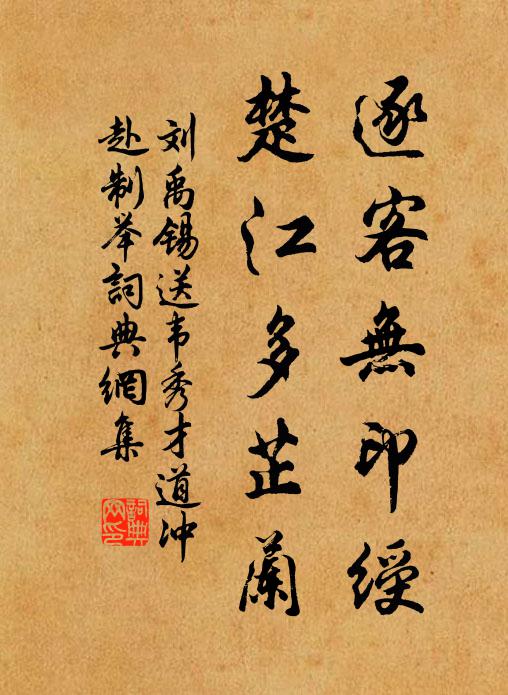 逐客無印綬
楚江多芷蘭
刘禹锡送韦秀才道冲
赴制举詞典網集
詞典
网印